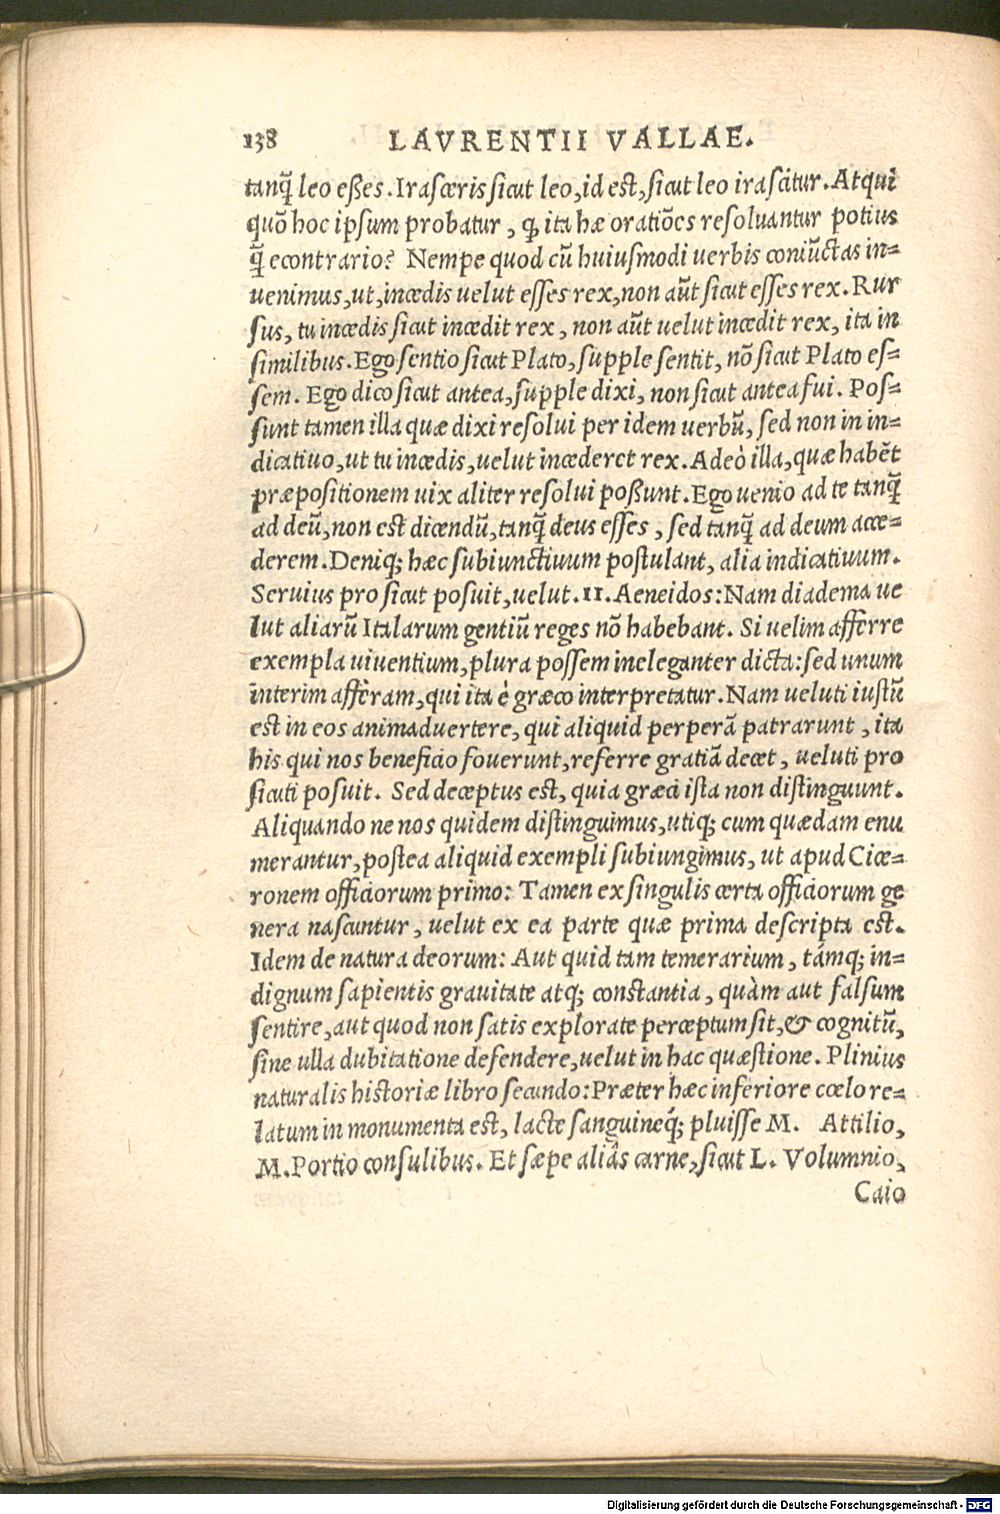 138 LAVRENTII VALLAE.
tanq̃ leo eßes. Irasceris sicut leo, id est, sicut leo irascitur. Atqui
quō hoc ipsum probatur, ꝙ ita hæ oratiōes resoluantur potius
q̃ econtrario? Nempe quod cũ huiusmodi uerbis coniũctas in=
uenimus, ut, incedis uelut esses rex, non aũt sicut esses rex. Rur
sus, tu incedis sicut incedit rex, non aũt uelut incedit rex, ita in
similibus. Ego sentio sicut Plato, supple sentit, nō sicut Plato es=
sem. Ego dico sicut antea, supple dixi, non sicut antea fui. Pos=
sunt tamen illa quæ dixi resolui per idem uerbũ, sed non in in=
dicatiuo, ut tu incedis, uelut incederet rex. Adeò illa, quæ habẽt
præpositionem uix aliter resolui poßunt. Ego uenio ad te tanq̃
ad deũ, non est dicendũ, tanq̃ deus esses, sed tanq̃ ad deum acce=
derem. Deniq; hæc subiunctiuum postulant, alia indicatiuum.
Seruius pro sicut posuit, uelut. 11. Aeneidos: Nam diadema ue
lut aliarũ Italarum gentiũ reges nō habebant. Si uelim afferre
exempla uiuentium, plura possem ineleganter dicta: sed unum
interim afferam, qui ita è græco interpretatur. Nam ueluti iustũ
est in eos animaduertere, qui aliquid perperã patrarunt, ita
his qui nos beneficio fouerunt, referre gratiã decet, ueluti pro
sicuti posuit. Sed deceptus est, quia græci ista non distinguunt.
Aliquando ne nos quidem distinguimus, utiq; cum quædam enu
merantur, postea aliquid exempli subiungimus, ut apud Cice=
ronem officiorum primo: Tamen ex singulis certa officiorum ge
nera nascuntur, uelut ex ea parte quæ prima descripta est.
Idem de natura deorum: Aut quid tam temerarium, támq; in=
dignum sapientis grauitate atq; constantia, quàm aut falsum
sentire, aut quod non satis explorate perceptum sit, & cognitũ,
sine ulla dubitatione defendere, uelut in hac quæstione. Plinius
naturalis historiæ libro secundo: Præter hæc inferiore cœlo re=
latum in monumenta est, lacte sanguineq́; pluisse M. Attilio,
M. Portio consulibus. Et sæpe aliâs carne, sicut L. Volumnio,
Caio
Digitalisierung gefördert durch die Deutsche Forschungsgemeinschaft - DFG